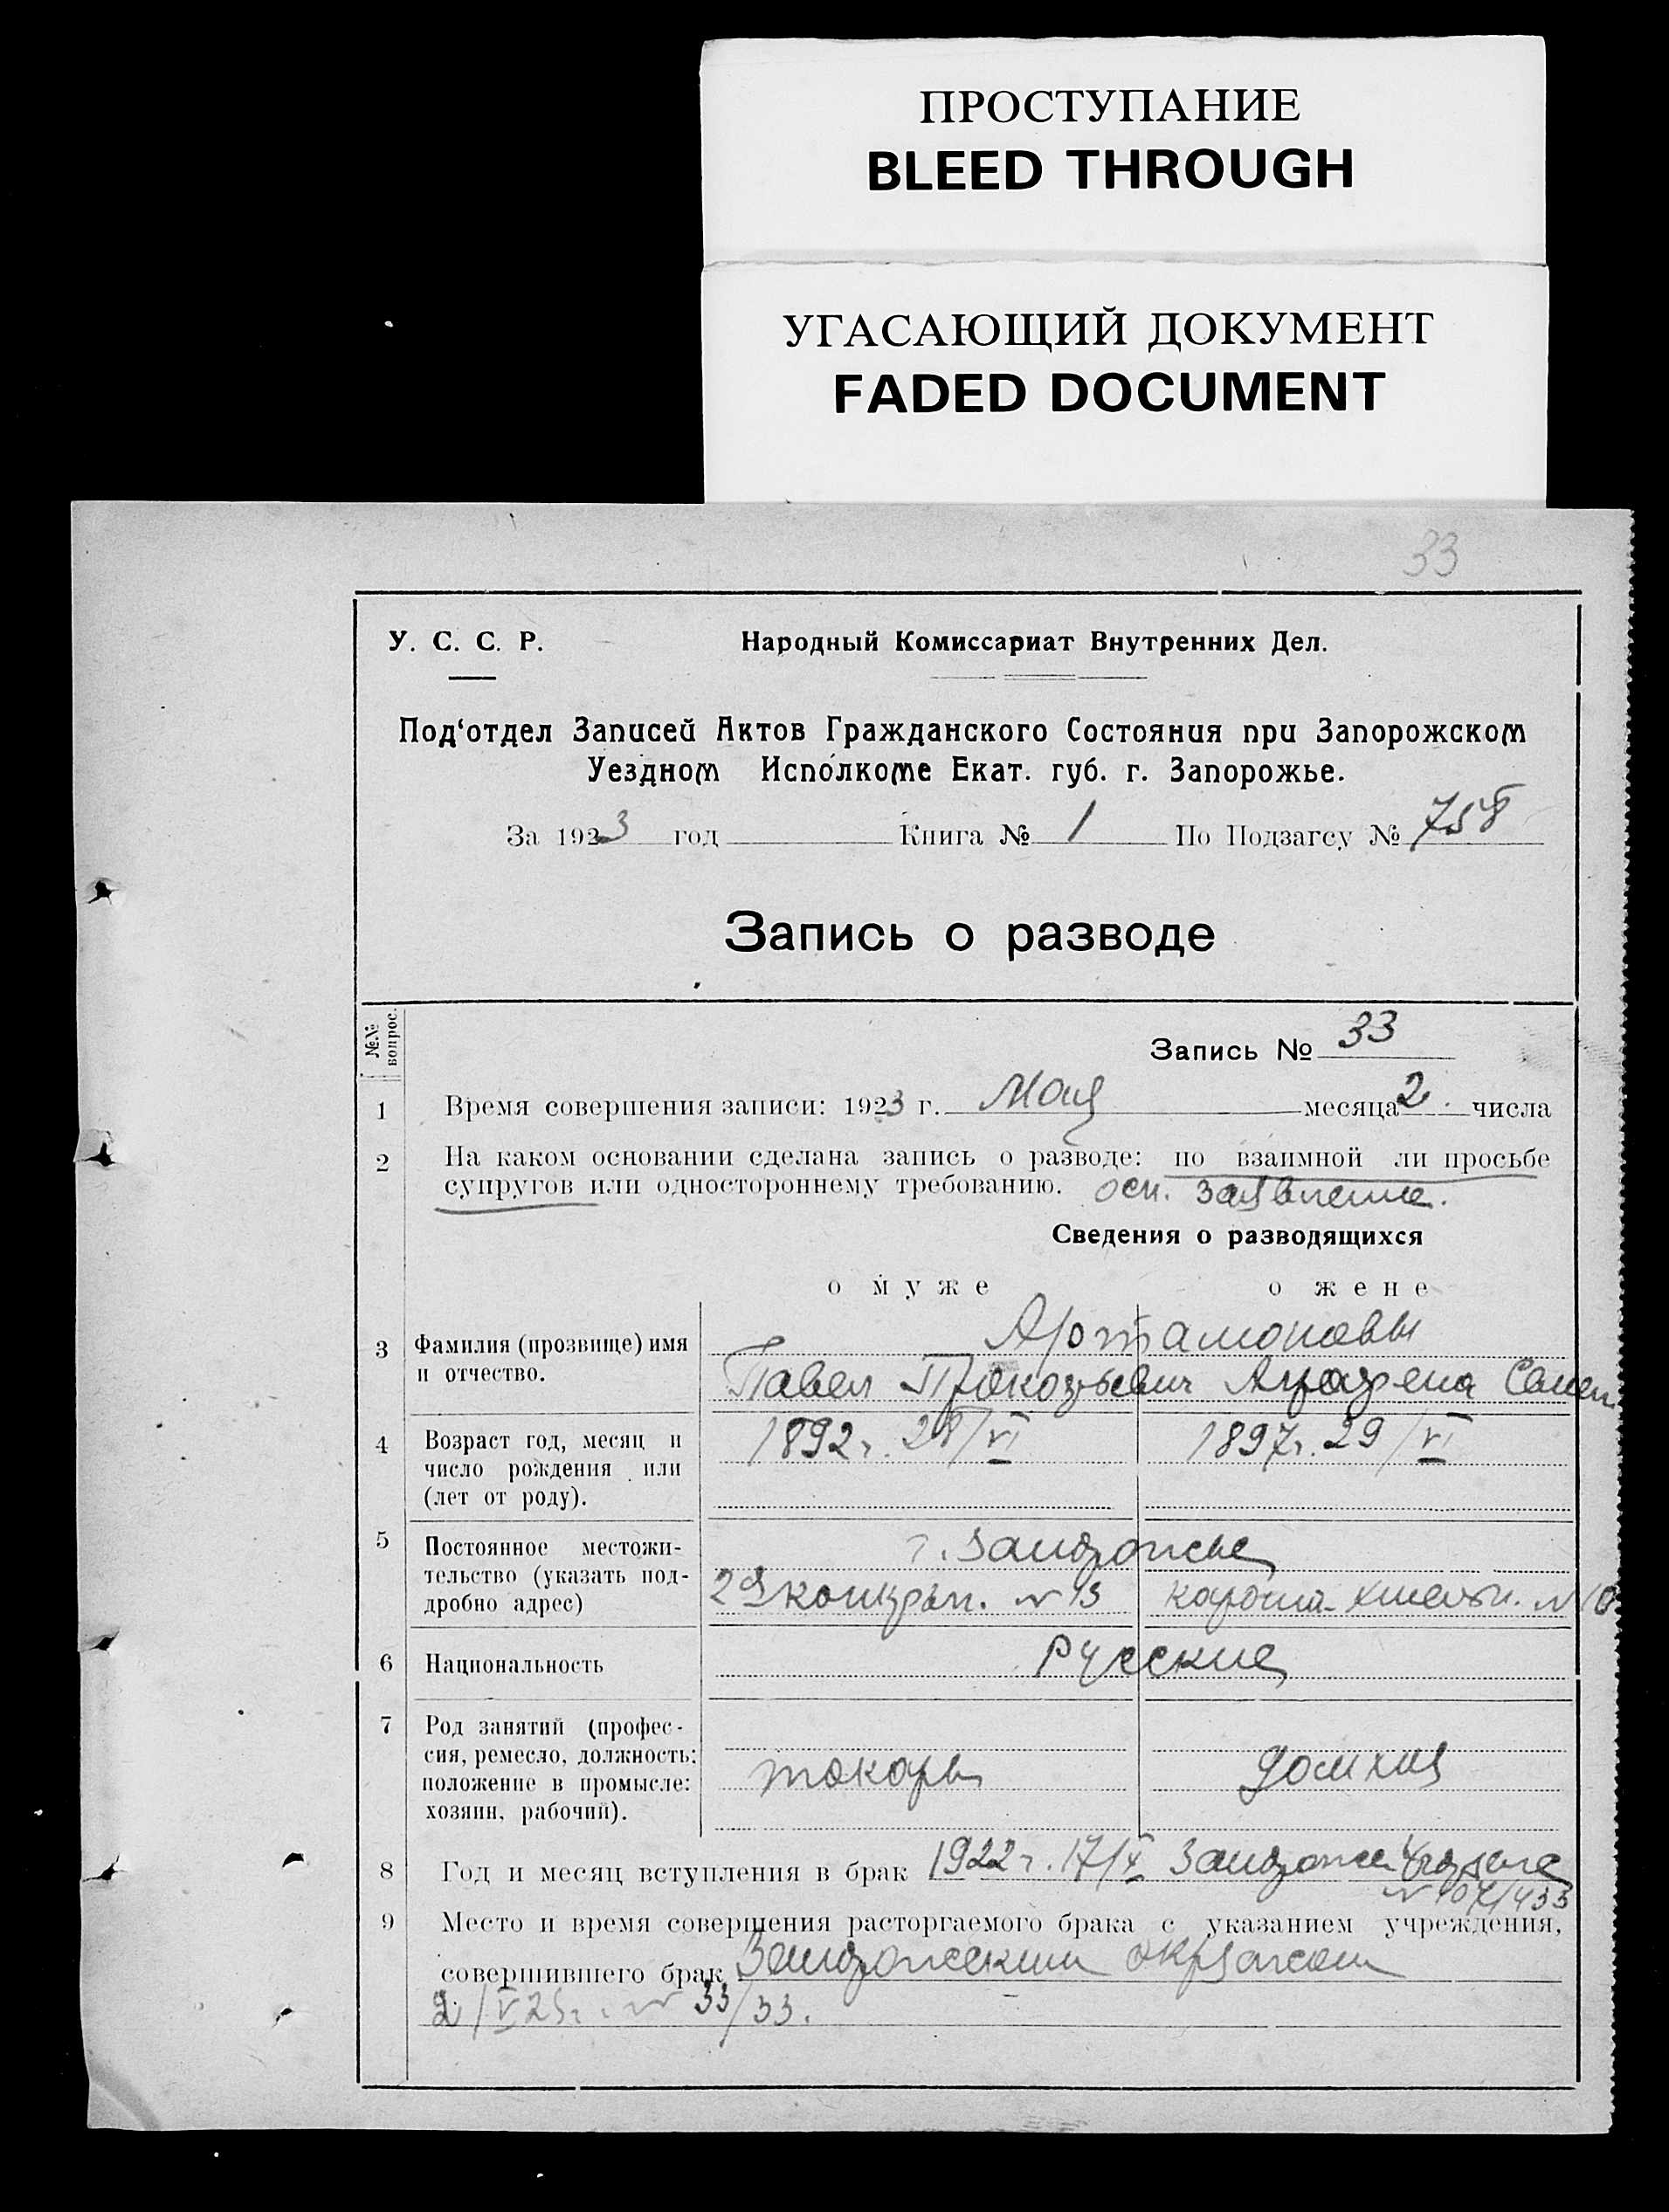 ПРОСТУПАНИЕ
BLEED THROUGH
УГАСАЮЩИЙ ДОКУМЕНТ
FADED DOCUMENT
33
У. С. С. Р. Народный Комиссариат Внутренних Дел.
Под‘отдел Записей Актов Гражданского Состояния при Запорожском
Уездном Исполкоме Екат. губ. г. Запорожье.
За 1923 год Книга № 1 По Подзагсу № 758
Запись о разводе
№№ вопрос.
Запись № 33
1 Время совершения записи: 1923 г. Мая месяца 2 числа
2 На каком основании сделана запись о разводе: по взаимной ли просьбе
супругов или одностороннему требованию. осн. заявление.
Сведения о разводящихся
о муже о жене
Артамоновы
3 Фамилия (прозвище) имя
и отчество.
Павел Прокофьевич Аграфена Семен
4 Возраст год, месяц и
число рождения или
(лет от роду).
1892 г. 28/VI 1897 г. 29/VI
5 Постоянное местожи-
тельство (указать под-
дробно адрес)
г. Запорожье
№ 13 № 10
6 Национальность Русские
7 Род занятий (профес-
сия, ремесло, должность:
положение в промысле:
хозяин, рабочий).
токарь домхоз
8 Год и месяц вступления в брак 1922 г. 17/X
9 Место и время совершения расторгаемого брака с указанием учреждения,
совершившего брак Запорожским окрзагсом
2/V 23 г. № 33/33.